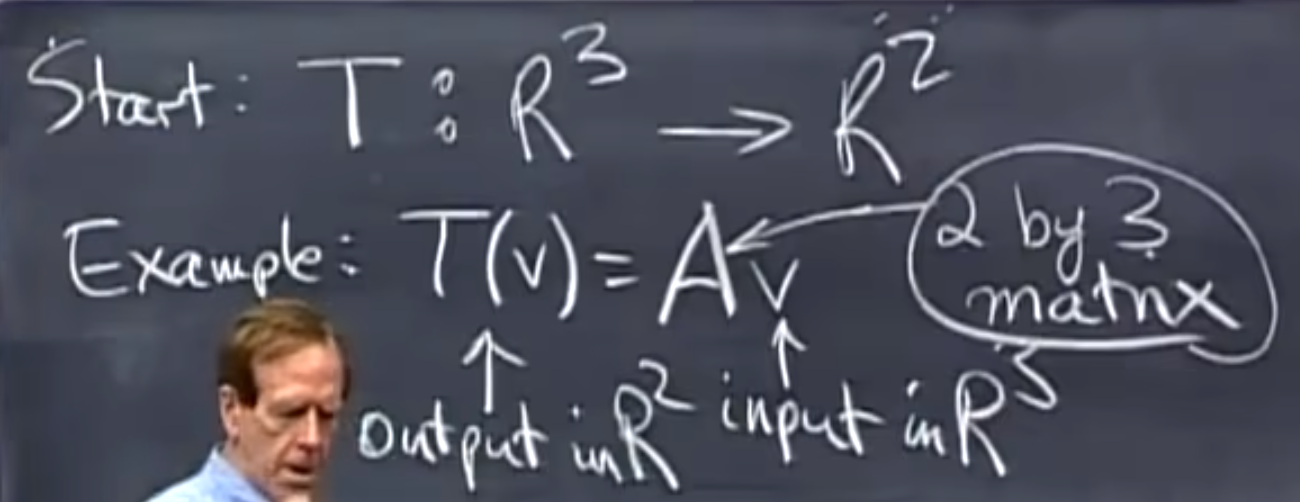 Start: T : R³ → R²
Example: T(v) = Av 2 by 3 matrix
output in R² input in R³